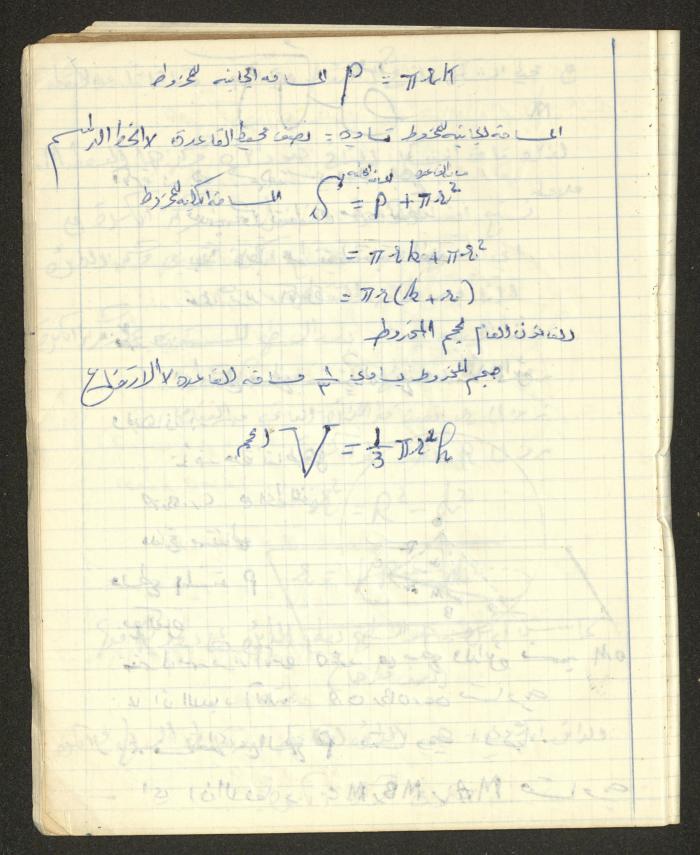 المساحة الجانبية للمخروط P = πrk
المساحة الجانبية للمخروط تساوي = نصف محيط القاعدة × الخط الراسم
مساحة القاعدة المساحة الجانبية
المساحة الكلية للمخروط S = P + πr²
= πrk + πr²
= πr(k + r)
القانون العام لحجم المخروط
حجم المخروط يساوي ١/٣ مساحة القاعدة × الارتفاع
الحجم V = 1/3 πr²h